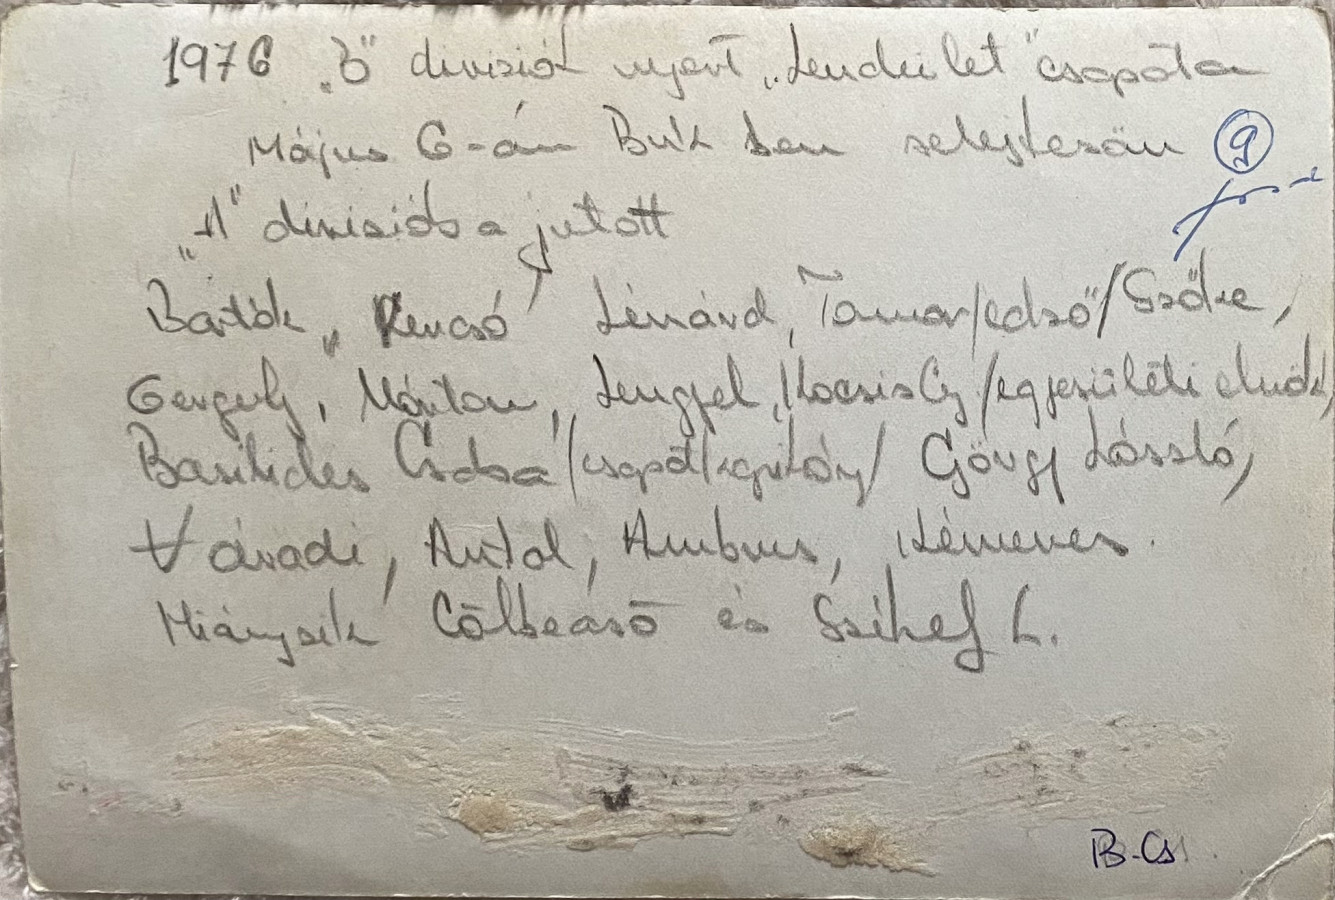 1976 „B" divisiót nyert „Lendület" csapata
Május 6-án Buk ben selejtezőn 9
„A" divisióba jutott
Bartók, Rencső Lénárd, Tamar/edző/ Szőke,
Gergely, Márton, Lengyel, Kocsis Gy /egyesületi elnök/,
Basilides Csaba /csapatkapitány/ Görgy László,
Váradi, Antal, Ambrus, Kemenes.
Hiányzik és Székely L.
B-Cs